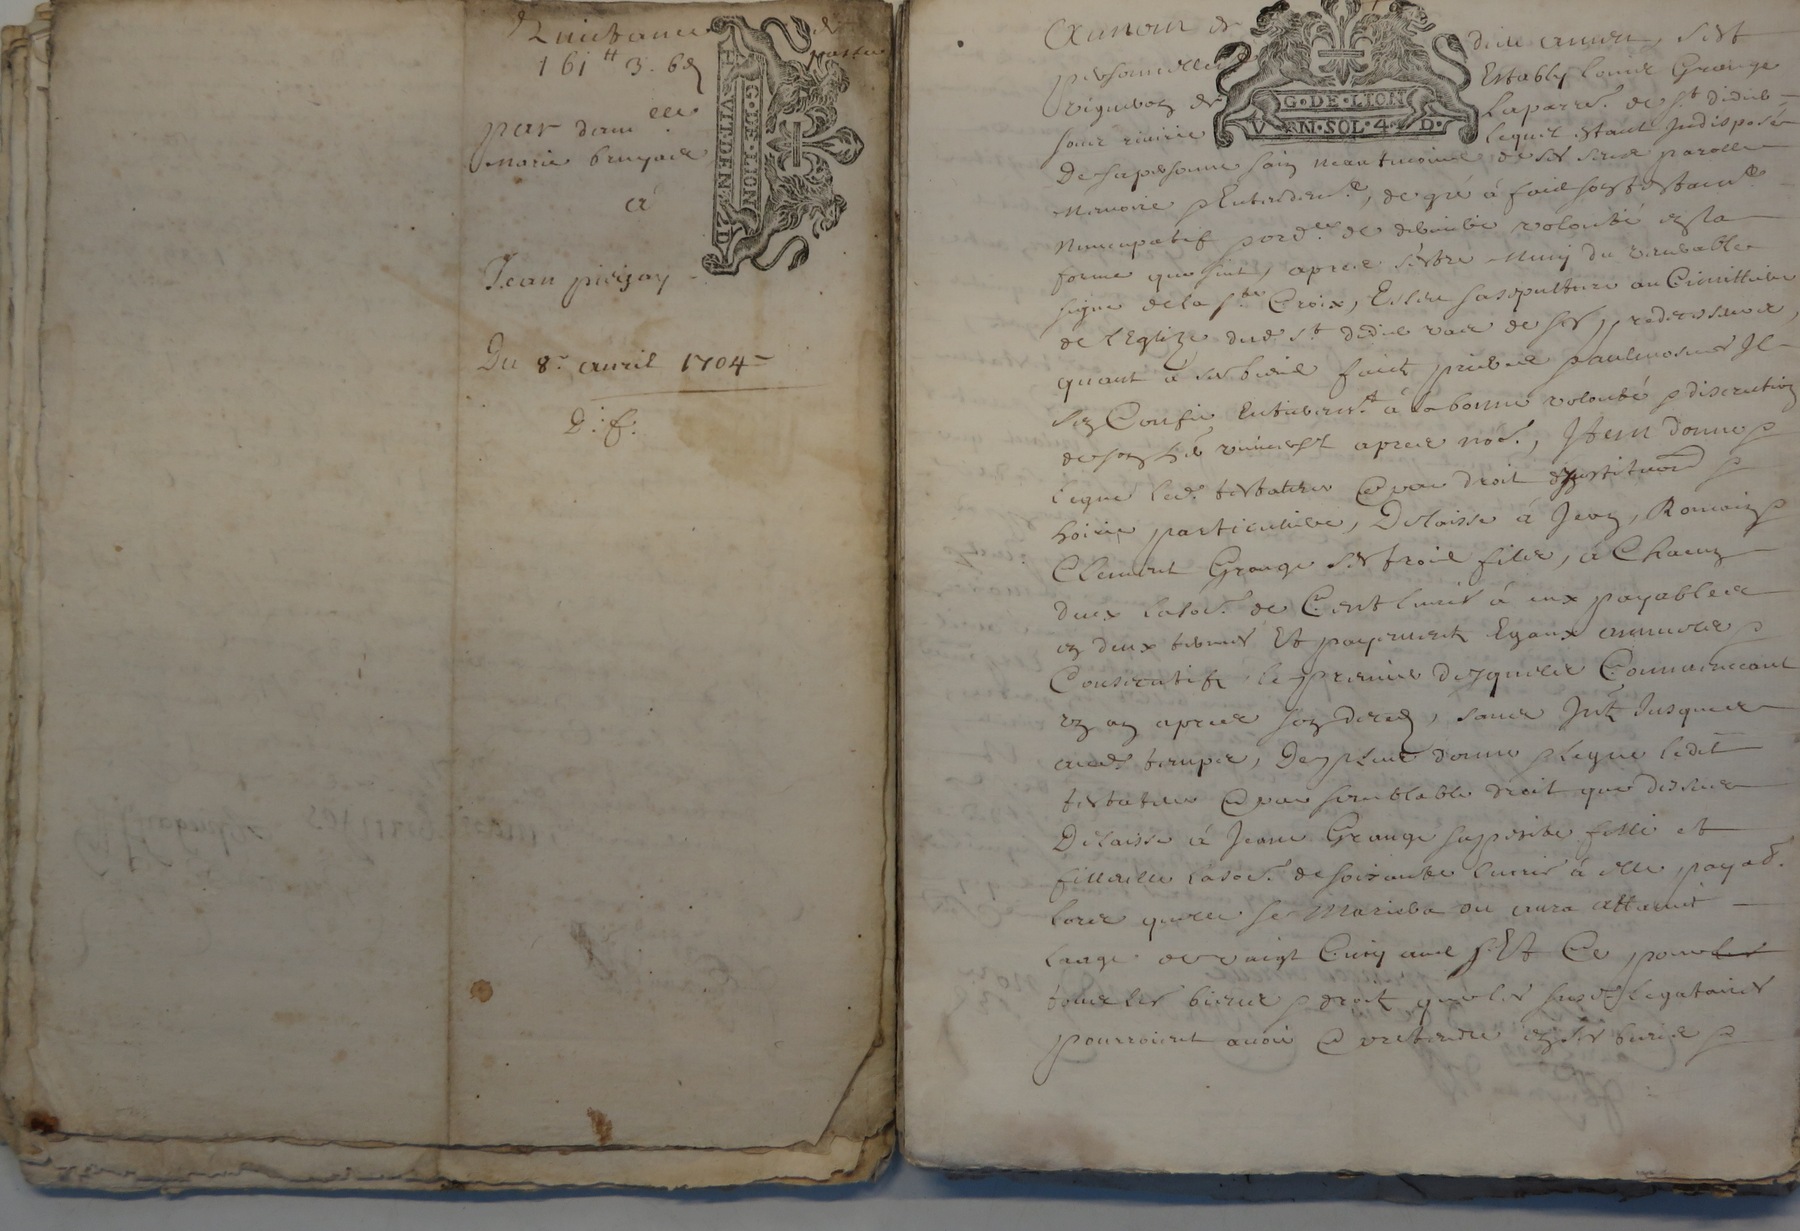 Quictance de
161 tt 3. 6d
par dam.elle
Marie bruyere
à
Jean
Du 8.e avril 1704
G. DE LION
HVIT DEN. N. D
Au nom de dieu amen, sest
personnelle Estably Louis Grange
vigneron de la parr.e de s.t didier
sous riviere lequel estant Indisposé
De sa personne sain neantmoins de ses sens parolle
memoire & Entendem.t, de gré à faict son testam.t
Nuncupatif & ord.ce de derniere volonté en la
forme que suit, apres s'estre muny du venerable
signe de la s.te Croix, Eslit sa sepulture au Cimittiere
de l'Eglize dud. s.t didier vas de ses predecesseurs,
quant à ses biens faicts prieres & aulmosnes Il
sen Confie Entierem.t à la bonne volonté & discretion
de son her. univers.l apres nom.é, Item donne &
legue led. testateur & par droit d'institution &
hoirie particuliere, Delaisse à Jean, Romain &
Clement Grange ses trois fils, à Chacun
deux la so.e de Cent livres à eux payables
en deux termes Et payements Egaux annuels &
Consecutifs le premier desquels Commenceant
un an apres son deced, sans Int. Jusques
aud. temps, De plus donne & legue ledit
testateur & par semblable droit que dessus
Delaisse à Jeane Grange sa petite fille et
filleulle la so.e de soixante livres à elle payab.
lors quelle se Mariera ou aura attaint
laage de vaigt Cinq ans & Et Ce pour les
tous les biens & droits que les susd. legataires
pourroient avoir & pretendre en ses biens &
G·DE·LION
VN·SOL·4·D·